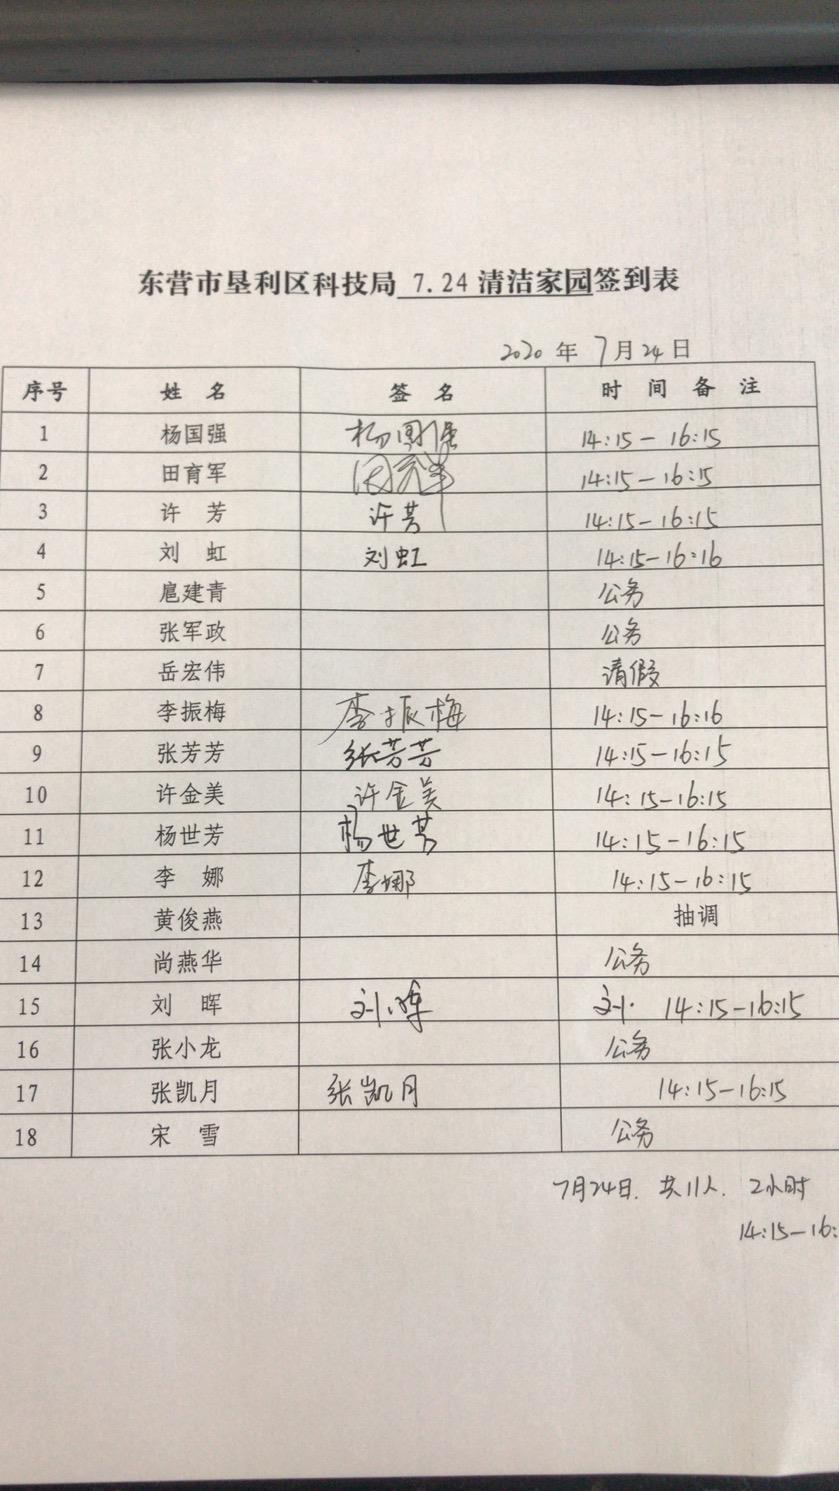 东营市垦利区科技局 7.24 清洁家园签到表
2020 年 7月 24 日
序号 姓 名 签 名 时 间 备 注
1 杨国强 杨国强 14:15-16:15
2 田育军 田育军 14:15-16:15
3 许 芳 许芳 14:15-16:15
4 刘 虹 刘虹 14:15-16:16
5 扈建青 公务
6 张军政 公务
7 岳宏伟 请假
8 李振梅 李振梅 14:15-16:16
9 张芳芳 张芳芳 14:15-16:15
10 许金美 许金美 14:15-16:15
11 杨世芳 杨世芳 14:15-16:15
12 李 娜 李娜 14:15-16:15
13 黄俊燕 抽调
14 尚燕华 公务
15 刘 晖 刘晖 刘. 14:15-16:15
16 张小龙 公务
17 张凯月 张凯月 14:15-16:15
18 宋 雪 公务
7月24日. 共11人. 2小时
14:15-16: